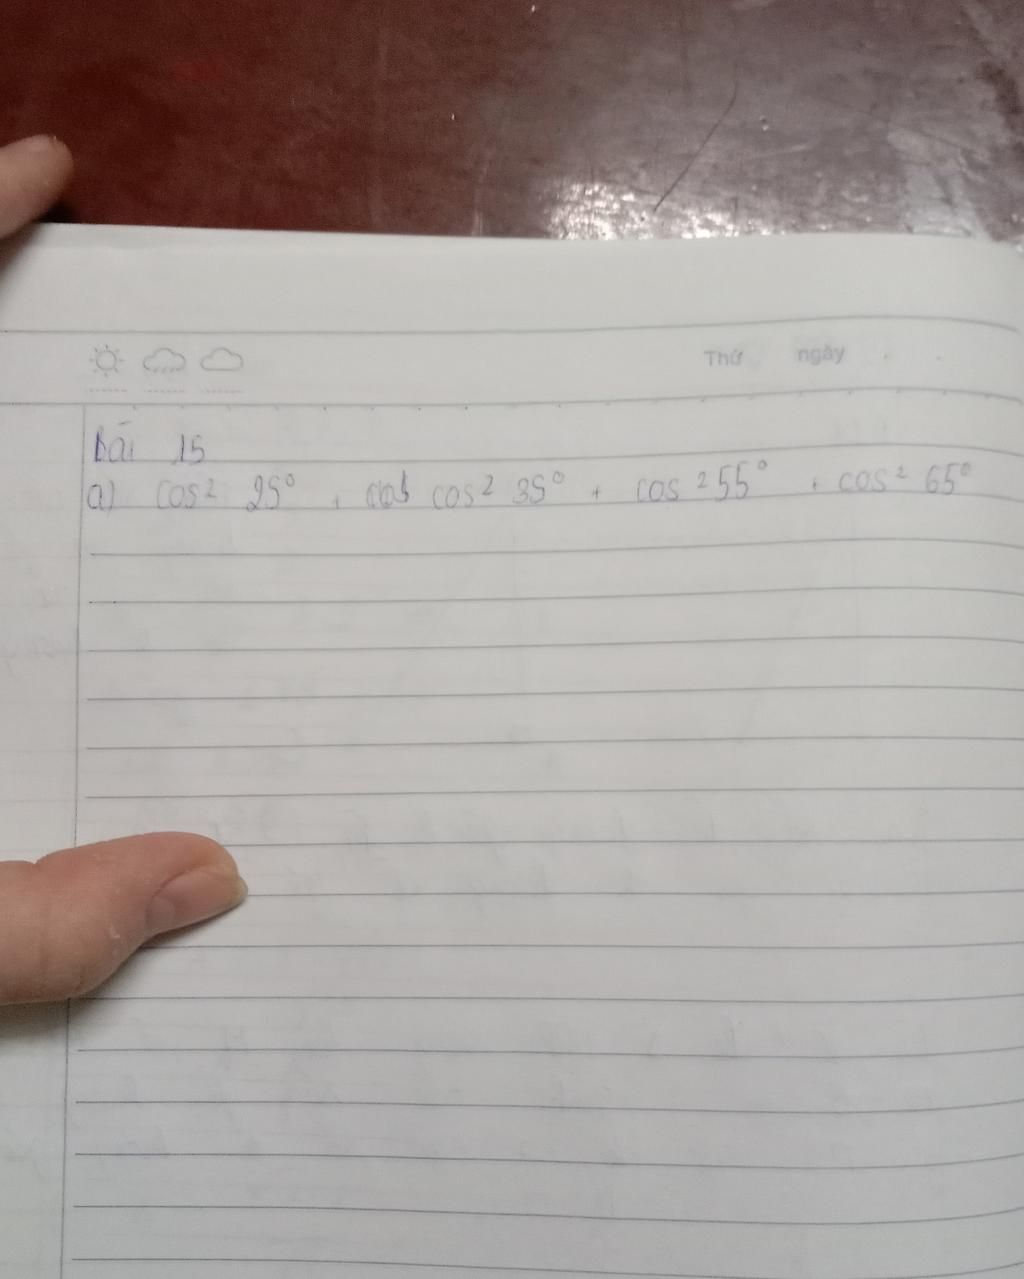 Thứ ngày
Bài 15
a) cos² 25° + cos² 35° + cos² 55° + cos² 65°